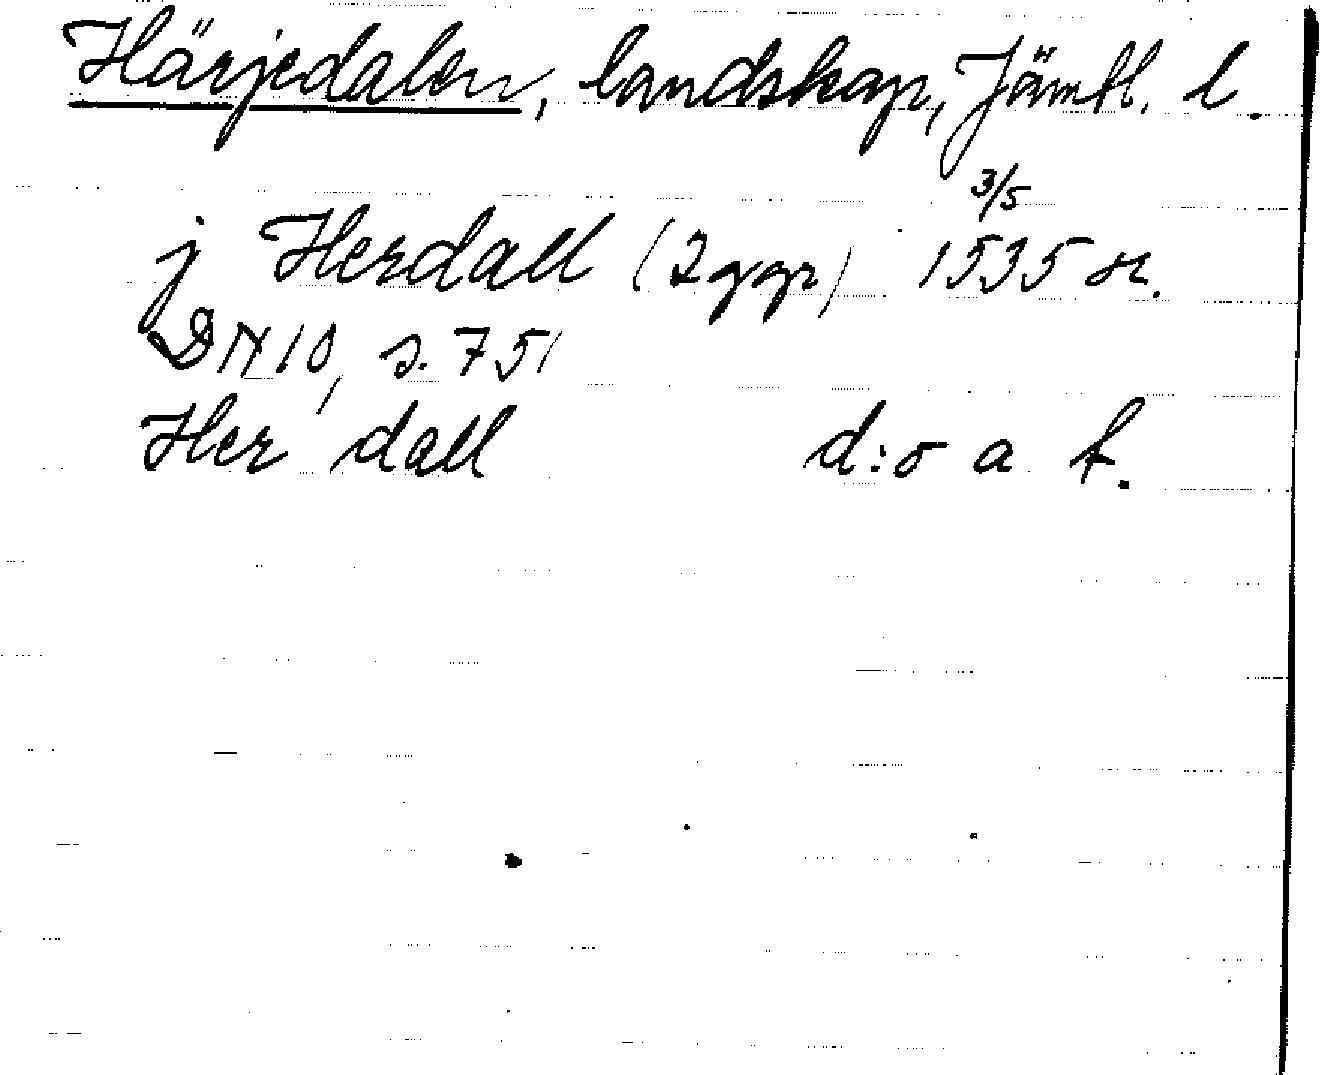 Härjedalen, landskap, Jämtl. l.
j Herdall (2 ggr) 3/5 1535 or.
DN 10, s. 751
Her dall d:o a st.